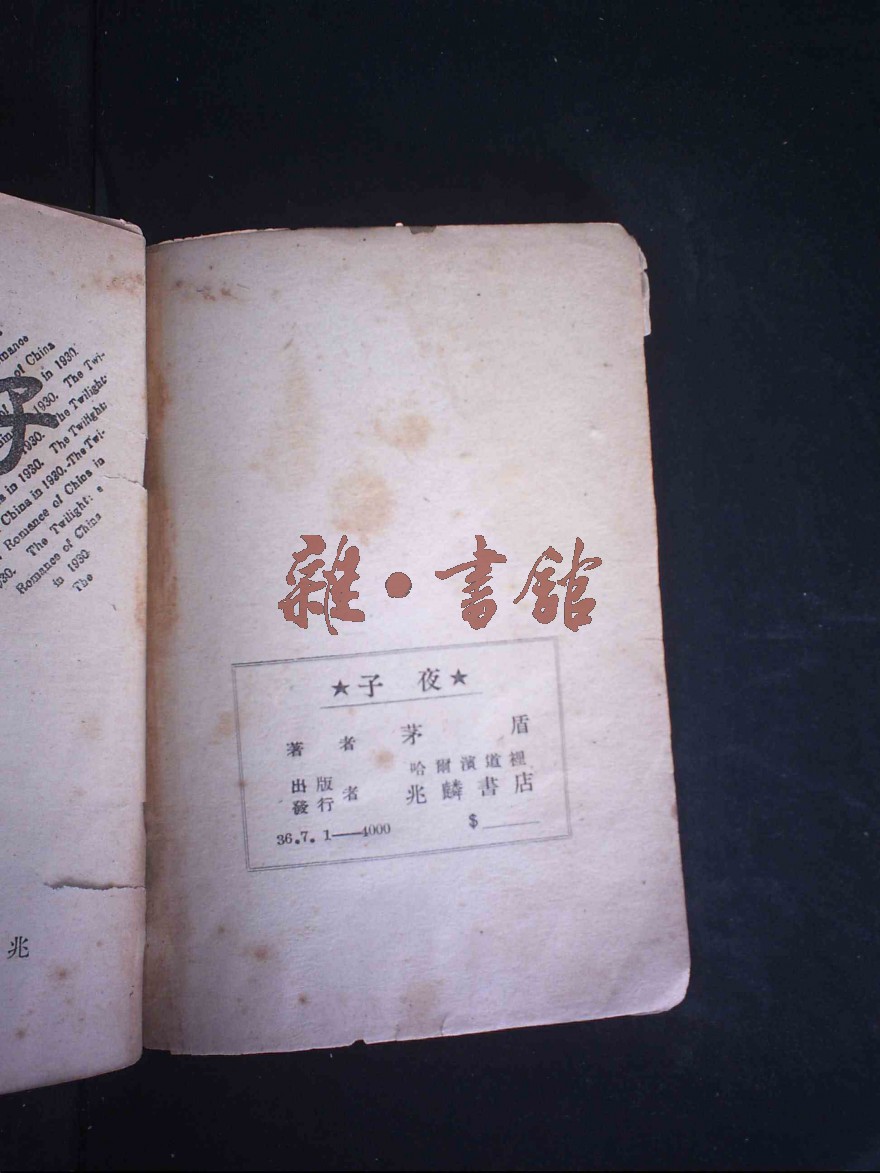 of China
in 1930.
1930. The Twi-
1930. The Twilight:
in 1930. The Twilight:
China in 1930. The Twi-
Romance of China in
The Twilight: a
Romance of China
in 1930
The
兆
雜•書館
★子 夜★
著者 茅盾
出版 哈爾濱道裡
發行者 兆麟書店
36.7.1——4000 $